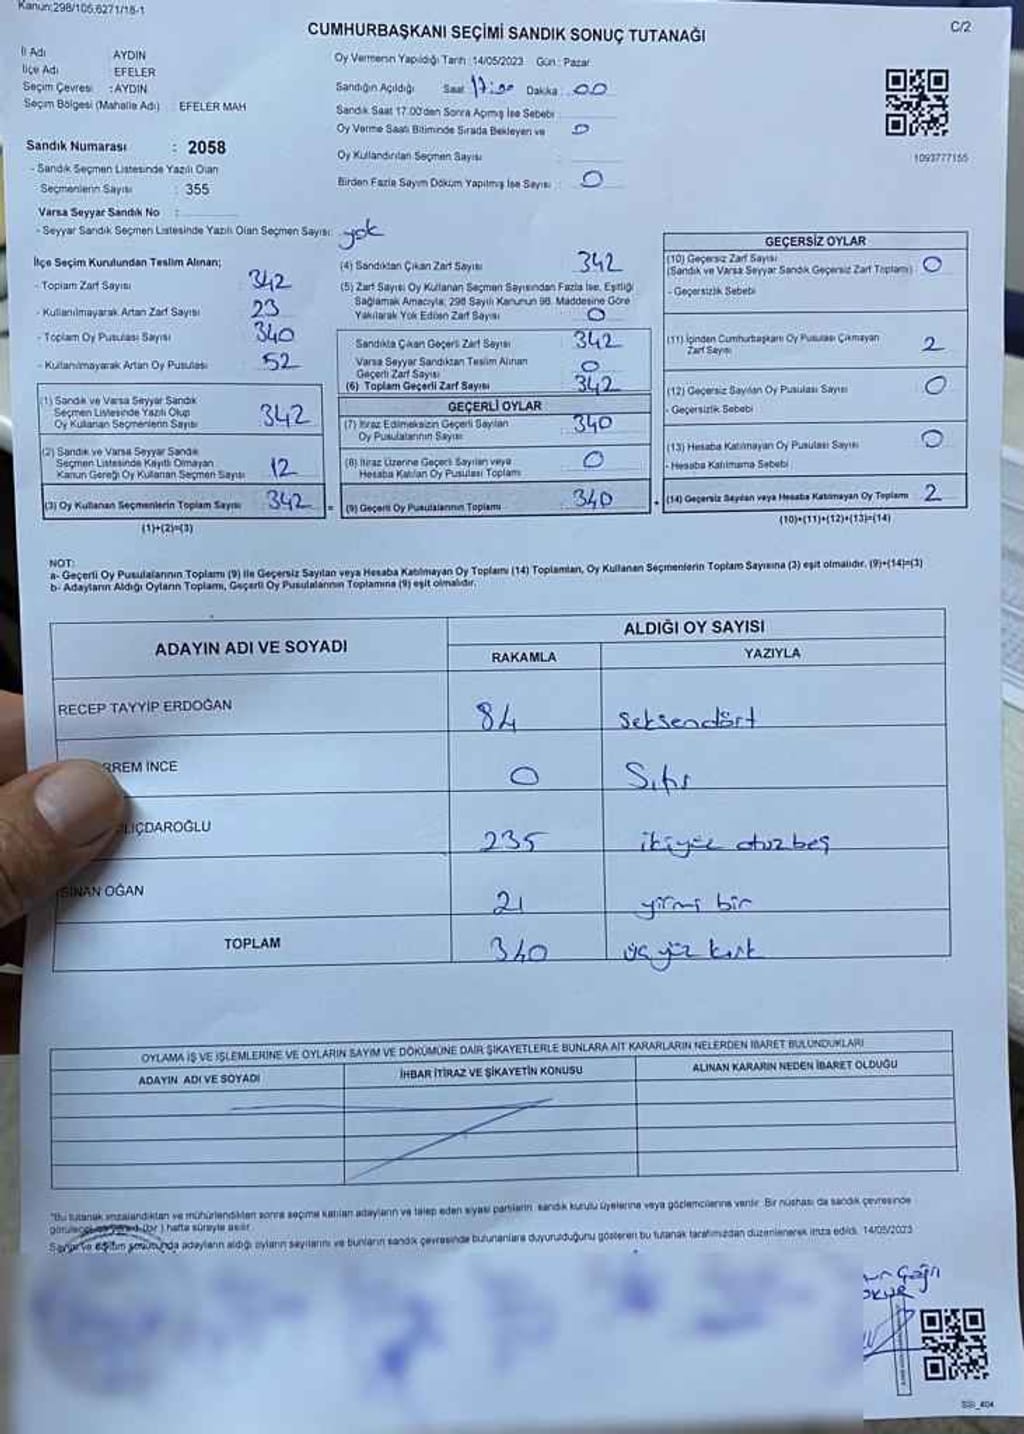 Kanun:298/105,6271/18-1
C/2
CUMHURBAŞKANI SEÇİMİ SANDIK SONUÇ TUTANAĞI
İl Adı AYDIN
İlçe Adı EFELER
Seçim Çevresi :AYDIN
Seçim Bölgesi (Mahalle Adı) : EFELER MAH
Sandık Numarası : 2058
- Sandık Seçmen Listesinde Yazılı Olan
Seçmenlerin Sayısı : 355
Varsa Seyyar Sandık No :
- Seyyar Sandık Seçmen Listesinde Yazılı Olan Seçmen Sayısı: yok
Oy Vermenin Yapıldığı Tarih :14/05/2023 Gün : Pazar
Sandığın Açıldığı Saat 17:00 Dakika : 00
Sandık Saat 17.00'den Sonra Açılmış İse Sebebi :
Oy Verme Saati Bitiminde Sırada Bekleyen ve 0
Oy Kullandırılan Seçmen Sayısı :
Birden Fazla Sayım Döküm Yapılmış İse Sayısı : 0
1093777155
İlçe Seçim Kurulundan Teslim Alınan;
- Toplam Zarf Sayısı 342
- Kullanılmayarak Artan Zarf Sayısı 23
- Toplam Oy Pusulası Sayısı 340
- Kullanılmayarak Artan Oy Pusulası 52
(1) Sandık ve Varsa Seyyar Sandık
Seçmen Listesinde Yazılı Olup
Oy Kullanan Seçmenlerin Sayısı 342
(2) Sandık ve Varsa Seyyar Sandık
Seçmen Listesinde Kayıtlı Olmayan
Kanun Gereği Oy Kullanan Seçmen Sayısı 12
(3) Oy Kullanan Seçmenlerin Toplam Sayısı 342 =
(1)+(2)=(3)
(4) Sandıktan Çıkan Zarf Sayısı 342
(5) Zarf Sayısı Oy Kullanan Seçmen Sayısından Fazla İse, Eşitliği
Sağlamak Amacıyla; 298 Sayılı Kanunun 98. Maddesine Göre
Yakılarak Yok Edilen Zarf Sayısı 0
Sandıkta Çıkan Geçerli Zarf Sayısı 342
Varsa Seyyar Sandıktan Teslim Alınan
Geçerli Zarf Sayısı 0
(6) Toplam Geçerli Zarf Sayısı 342
GEÇERLİ OYLAR
(7) İtiraz Edilmeksizin Geçerli Sayılan
Oy Pusulalarının Sayısı 340
(8) İtiraz Üzerine Geçerli Sayılan veya
Hesaba Katılan Oy Pusulası Toplamı 0
(9) Geçerli Oy Pusulalarının Toplamı 340 +
GEÇERSİZ OYLAR
(10) Geçersiz Zarf Sayısı
(Sandık ve Varsa Seyyar Sandık Geçersiz Zarf Toplamı) 0
- Geçersizlik Sebebi
(11) İçinden Cumhurbaşkanı Oy Pusulası Çıkmayan
Zarf Sayısı 2
(12) Geçersiz Sayılan Oy Pusulası Sayısı 0
- Geçersizlik Sebebi
(13) Hesaba Katılmayan Oy Pusulası Sayısı 0
- Hesaba Katılmama Sebebi
(14) Geçersiz Sayılan veya Hesaba Katılmayan Oy Toplamı 2
(10)+(11)+(12)+(13)=(14)
NOT:
a- Geçerli Oy Pusulalarının Toplamı (9) ile Geçersiz Sayılan veya Hesaba Katılmayan Oy Toplamı (14) Toplamları, Oy Kullanan Seçmenlerin Toplam Sayısına (3) eşit olmalıdır, (9)+(14)=(3)
b- Adayların Aldığı Oyların Toplamı, Geçerli Oy Pusulalarının Toplamına (9) eşit olmalıdır.
ADAYIN ADI VE SOYADI ALDIĞI OY SAYISI
RAKAMLA YAZIYLA
RECEP TAYYİP ERDOĞAN 84 seksendört
RREM İNCE 0 Sıfır
LIÇDAROĞLU 235 ikiyüz otuzbeş
SİNAN OĞAN 21 yirmi bir
TOPLAM 340 üçyüz kırk
OYLAMA İŞ VE İŞLEMLERİNE VE OYLARIN SAYIM VE DÖKÜMÜNE DAİR ŞİKAYETLERLE BUNLARA AİT KARARLARIN NELERDEN İBARET BULUNDUKLARI
ADAYIN ADI VE SOYADI İHBAR İTİRAZ VE ŞİKAYETİN KONUSU ALINAN KARARIN NEDEN İBARET OLDUĞU
"Bu tutanak imzalandıktan ve mühürlendikten sonra seçime katılan adayların ve talep eden siyasi partilerin sandık kurulu üyelerine veya gözlemcilerine verilir. Bir nüshası da sandık çevresinde
hafta süreyle asılır.
adayların aldığı oyların sayılarını ve bunların sandık çevresinde bulunanlara duyurulduğunu gösteren bu tutanak tarafımızdan düzenlenerek imza edildi. 14/05/2023